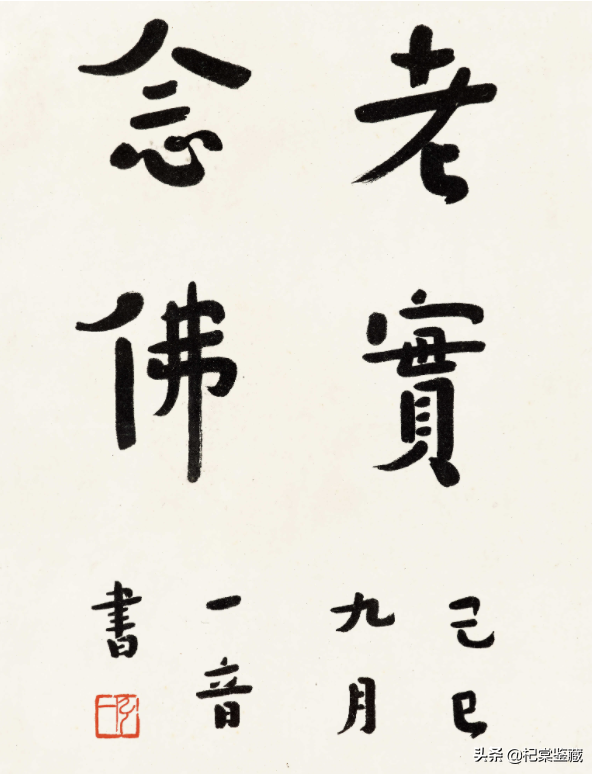 老實
念佛
己巳
九月
一音
書
头条 @杞棠鉴藏